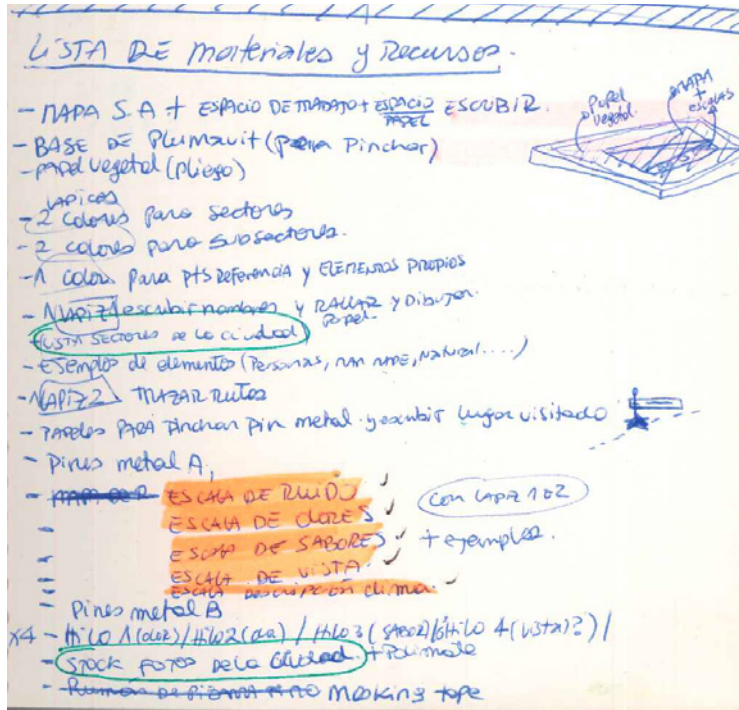 LISTA DE materiales y Recursos.
- MAPA S.A + ESPACIO DE TRABAJO + ESPACIO PAPEL ESCRIBIR.
papel vegetal.
MAPA + escalas
- BASE DE Plumavit (para Pinchar)
- papel vegetal (pliego)
LAPICES
- 2 colores para sectores
- 2 colores para subsectores.
- 1 color para pts REFERENCIA Y ELEMENTOS PROPIOS
- LAPIZ 1 escribir nombres y RALLAR y Dibujar papel.
LISTA SECTORES DE La ciudad
- Ejemplos de elementos (Personas, MAN MADE, Natural....)
- LAPIZ 2 TRAZAR RUTAS
- PAPELES PARA Pinchar Pin metal y escribir lugar visitado
- Pines metal A,
- ESCALA DE RUIDO
con LAPIZ 1 o 2
ESCALA DE OLORES
ESCALA DE SABORES
+ ejemplos.
ESCALA DE VISTA
ESCALA DESCRIPCIÓN clima
Pines metal B
x4 - HILO 1 (oloz) / HILO 2 (oia) / HILO 3 (SABOZ) / HILO 4 (vista)?) /
- STOCK FOTOS DE LA CIUDAD. +
- Masking tape